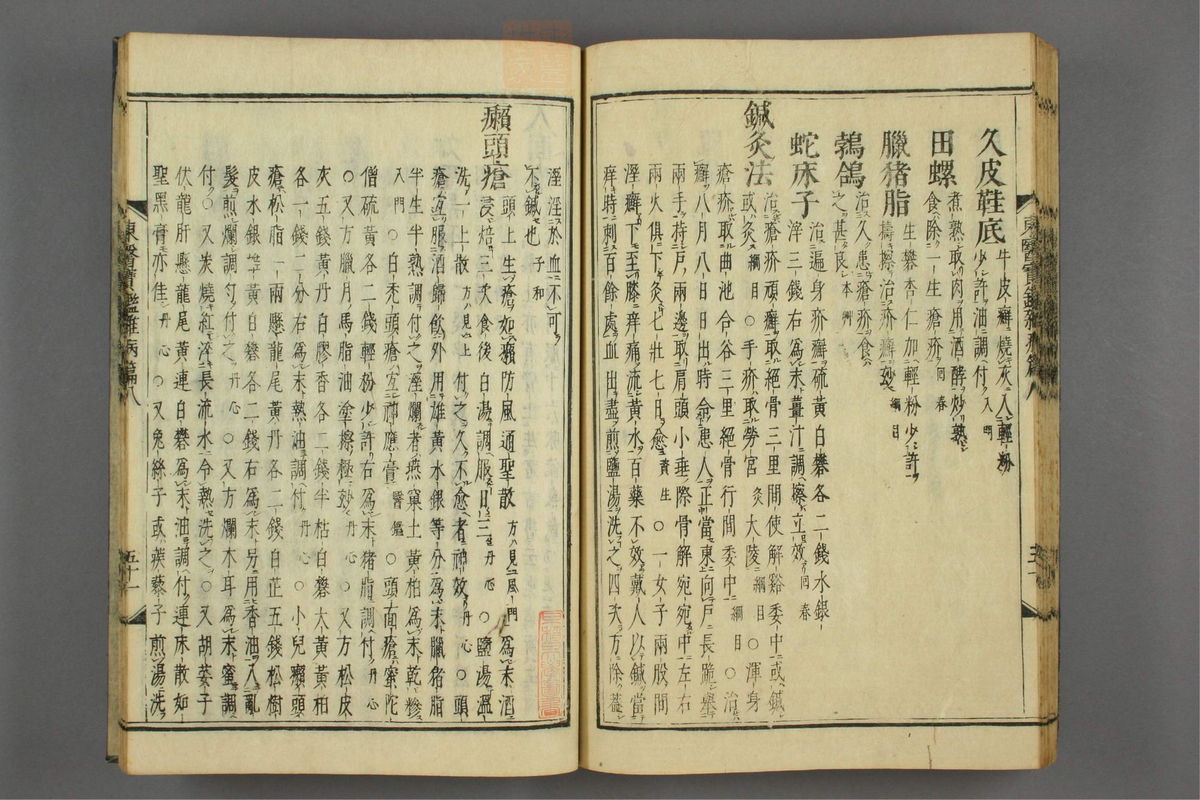 久皮鞋底 牛皮癬燒灰入輕粉
少許油調付入門
田螺 煮熟取肉用酒醉炒熟
食除一生瘡疥回春
臘猪脂 生礬杏仁加輕粉少許
擣擦治疥癬妙綱目
鵓鴿 治久患瘡疥食
之甚良本艸
蛇床子 治遍身疥癬硫黃白礬各二錢水銀
滓三錢右爲末薑汁調擦立效回春
鍼灸法 治瘡疥頑癬取絕骨三里間使解谿委中或鍼
或灸綱目○手疥取勞宮灸大陵綱目○渾身
瘡疥取曲池合谷三里絕骨行間委中綱目○治
癬八月八日日出時令患人正當東向戶長跪擧
兩手持戶兩邊取肩頭小垂際骨解宛宛中左右
兩火俱下灸七壯七日愈資生○一女子兩股間
溼癬下至膝痒痛流黃水百藥不效戴人以鍼當
痒時刺百餘處血出盡煎鹽湯洗之四次方除蓋
溼淫於血不可
不鍼也子和
癩頭瘡 頭上生瘡如癩防風通聖散方見風門爲末酒
浸焙三次食後白湯調服日三丹心○鹽湯溫
洗一上散方見上付之久不愈者神效丹心○頭
瘡宜服酒歸飮外用雄黃水銀等分爲末臘猪脂
半生半熟調付之溼爛者燕窠土黃柏爲末乾糝
入門○白禿頭瘡宜神應膏醫鑑○頭面瘡蜜陀
僧硫黃各二錢輕粉少許右爲末猪脂調付丹心
○又方臘月馬脂油塗擦極妙丹心○又方松皮
灰五錢黃丹白膠香各二錢半枯白礬大黃黃柏
各一錢二分右爲末熟油調付丹心○小兒癩頭
瘡松脂一兩懸龍尾黃丹各二錢白芷五錢松樹
皮水銀雄黃白礬各二錢右爲末另用香油入亂
髮煎爛調勻付之丹心○又方爛木耳爲末蜜調
付○又炭燒紅淬長流水令熱洗之○又胡荽子
伏龍肝懸龍尾黃連白礬爲末油調付連床散如
聖黑膏亦佳丹心○又兔絲子或蒺藜子煎湯洗
東醫寶鑑雜病篇八 五十一